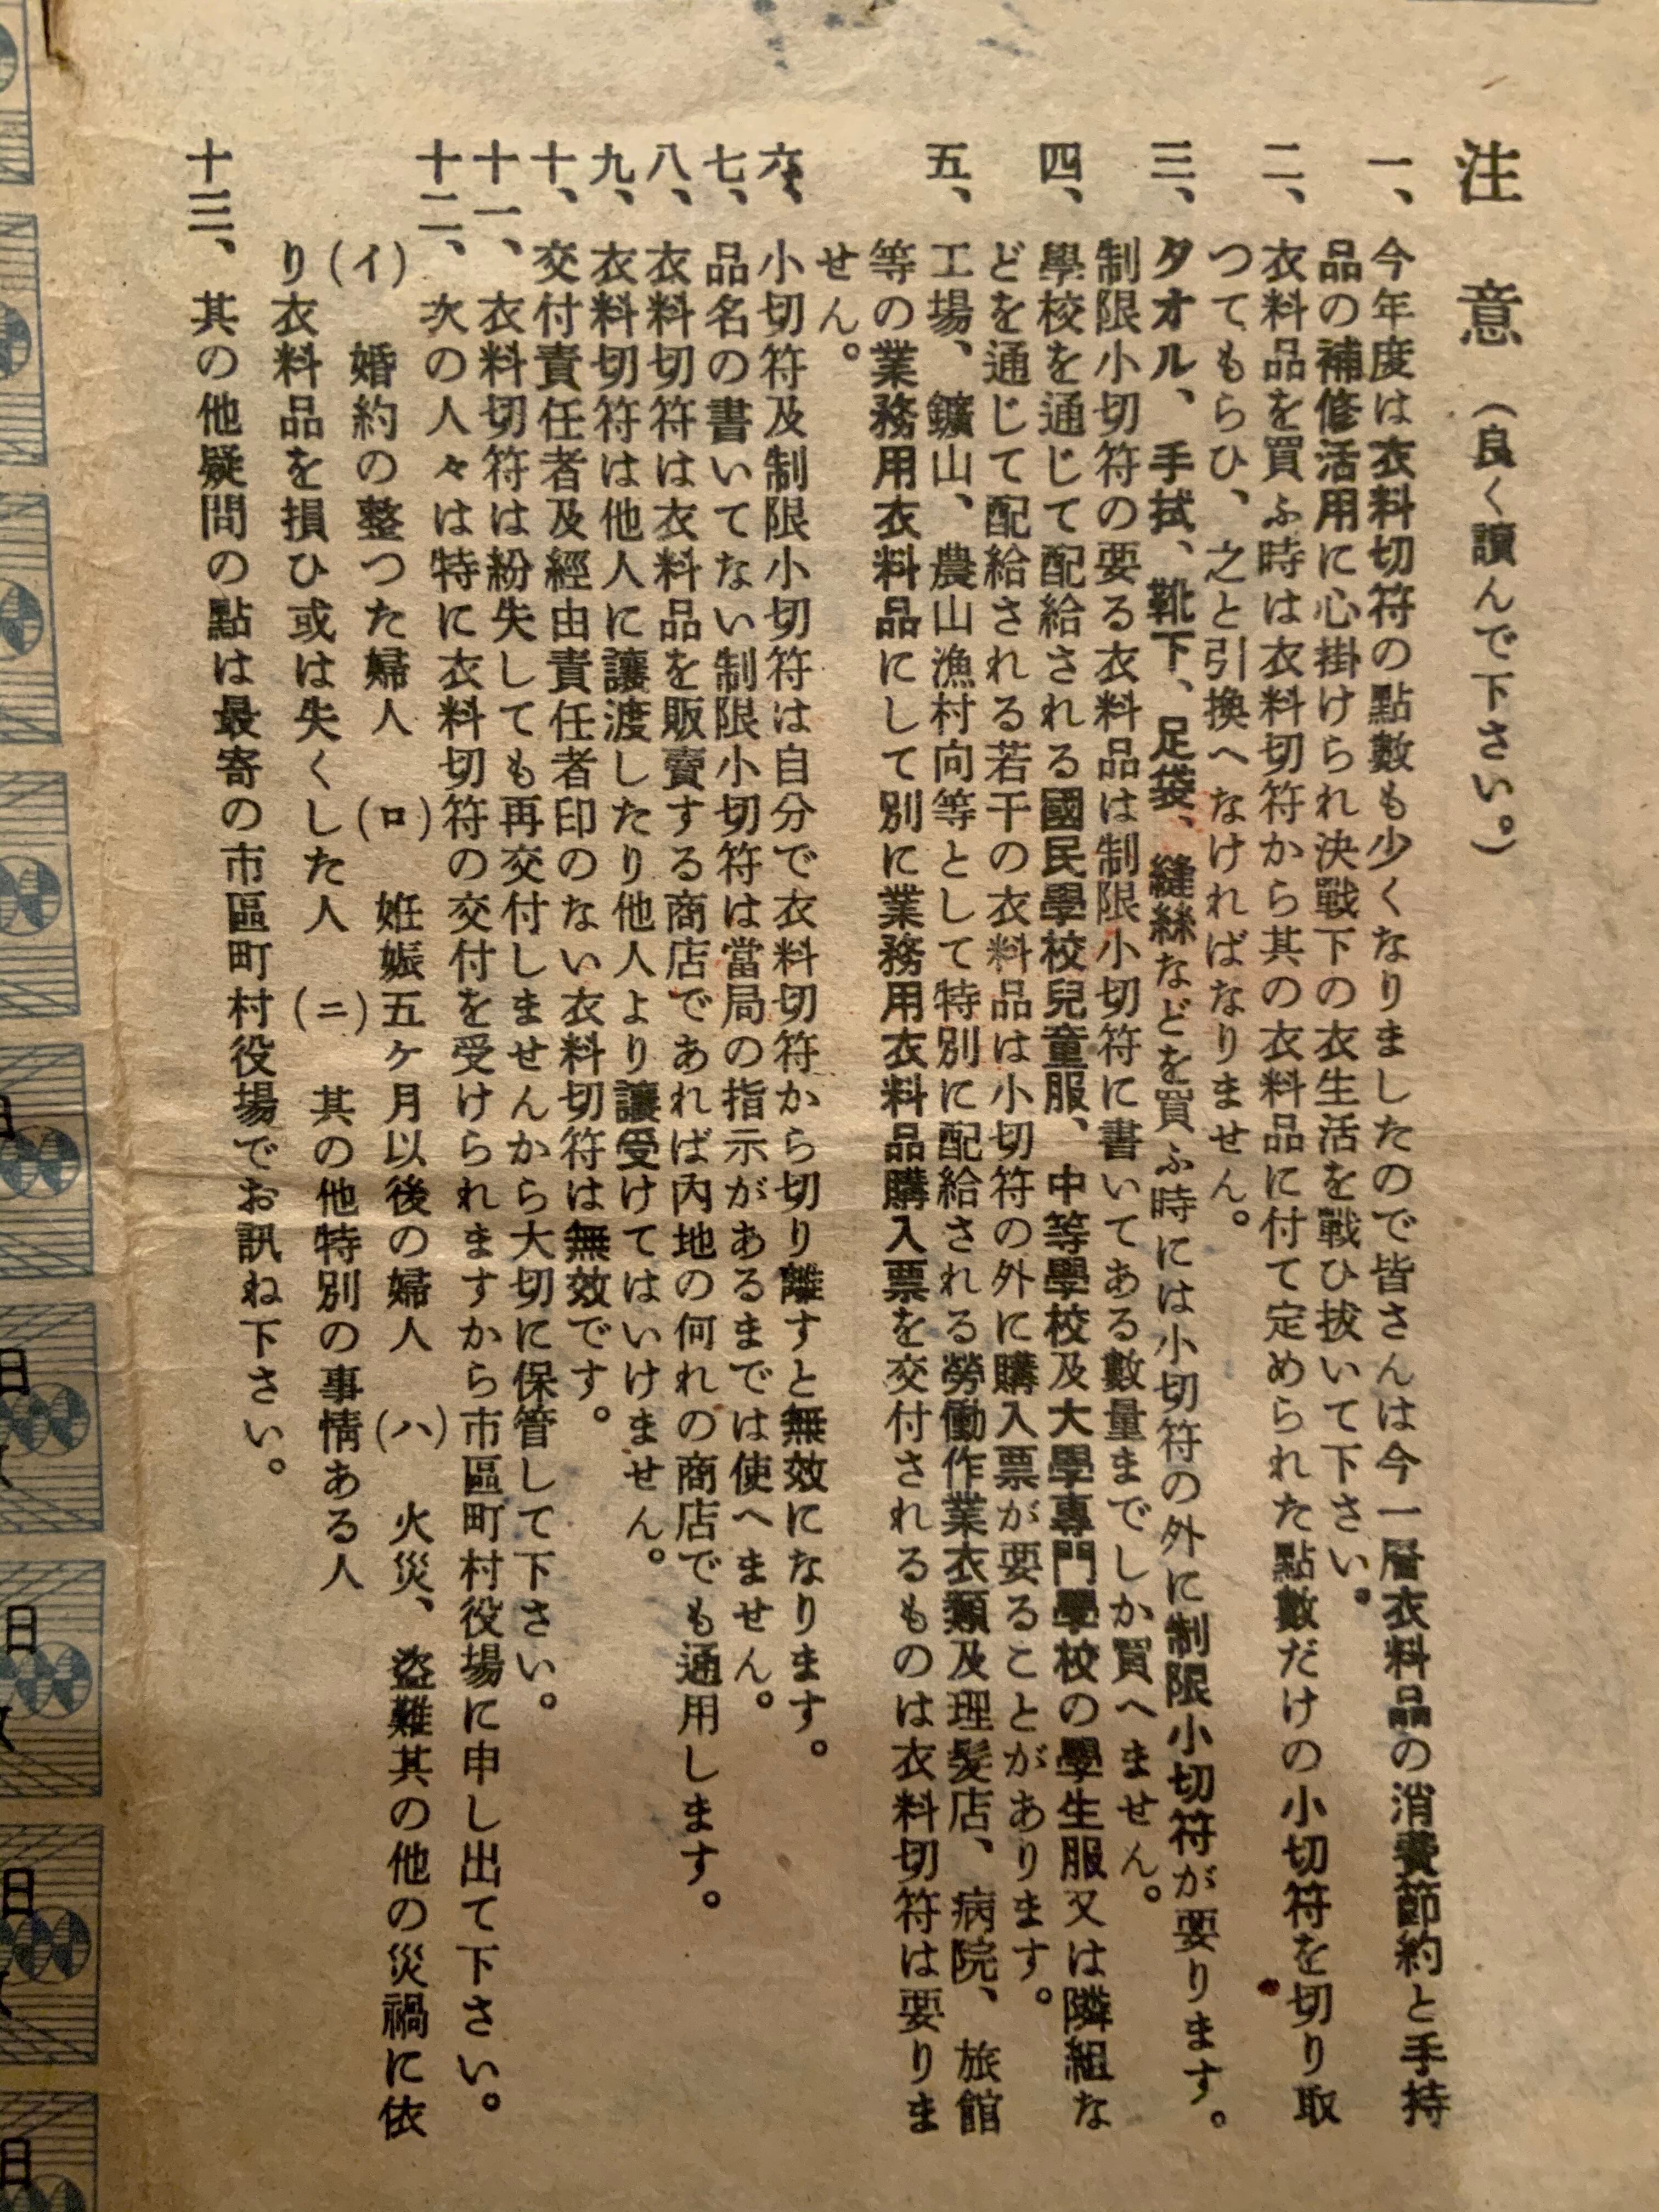 注意（良く讀んで下さい。）
一、今年度は衣料切符の點數も少くなりましたので皆さんは今一層衣料品の消費節約と手持
品の補修活用に心掛けられ決戰下の衣生活を戰ひ抜いて下さい。
二、衣料品を買ふ時は衣料切符から其の衣料品に付て定められた點數だけの小切符を切り取
つてもらひ、之と引換へなければなりません。
三、タオル、手拭、靴下、足袋、縫絲などを買ふ時には小切符の外に制限小切符が要ります。
制限小切符の要る衣料品は制限小切符に書いてある數量までしか買へません。
四、學校を通じて配給される國民學校兒童服、中等學校及大學專門學校の學生服又は隣組な
どを通じて配給される若干の衣料品は小切符の外に購入票が要ることがあります。
五、工場、鑛山、農山漁村向等として特別に配給される勞働作業衣類及理髪店、病院、旅館
等の業務用衣料品にして別に業務用衣料品購入票を交付されるものは衣料切符は要りま
せん。
六、小切符及制限小切符は自分で衣料切符から切り離すと無效になります。
七、品名の書いてない制限小切符は當局の指示があるまでは使へません。
八、衣料切符は衣料品を販賣する商店であれば內地の何れの商店でも通用します。
九、衣料切符は他人に讓渡したり他人より讓受けてはいけません。
十、交付責任者及經由責任者印のない衣料切符は無效です。
十一、衣料切符は紛失しても再交付しませんから大切に保管して下さい。
十二、次の人々は特に衣料切符の交付を受けられますから市區町村役場に申し出て下さい。
（イ）婚約の整つた婦人（ロ）妊娠五ヶ月以後の婦人（ハ）火災、盜難其の他の災禍に依
り衣料品を損ひ或は失くした人（ニ）其の他特別の事情ある人
十三、其の他疑問の點は最寄の市區町村役場でお訊ね下さい。
日
日
日
日
日